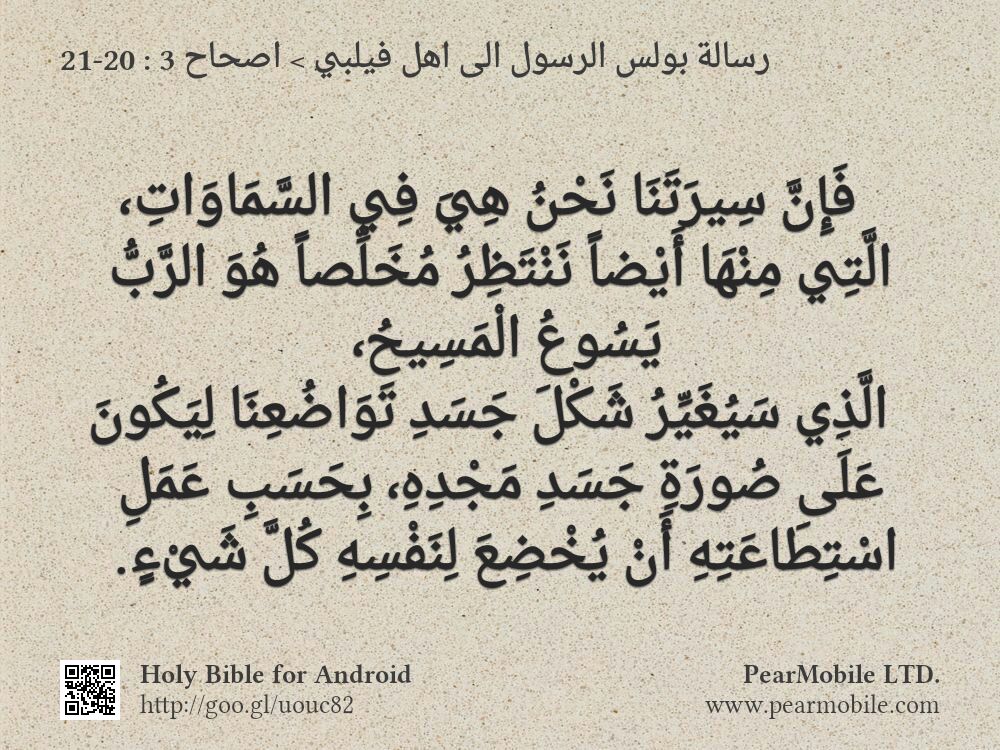 رسالة بولس الرسول الى اهل فيلبي > اصحاح 3 : 20-21
فَإِنَّ سِيرَتَنَا نَحْنُ هِيَ فِي السَّمَاوَاتِ،
الَّتِي مِنْهَا أَيْضاً نَنْتَظِرُ مُخَلِّصاً هُوَ الرَّبُّ
يَسُوعُ الْمَسِيحُ،
الَّذِي سَيُغَيِّرُ شَكْلَ جَسَدِ تَوَاضُعِنَا لِيَكُونَ
عَلَى صُورَةِ جَسَدِ مَجْدِهِ، بِحَسَبِ عَمَلِ
اسْتِطَاعَتِهِ أَنْ يُخْضِعَ لِنَفْسِهِ كُلَّ شَيْءٍ.
Holy Bible for Android
http://goo.gl/uouc82
PearMobile LTD.
www.pearmobile.com